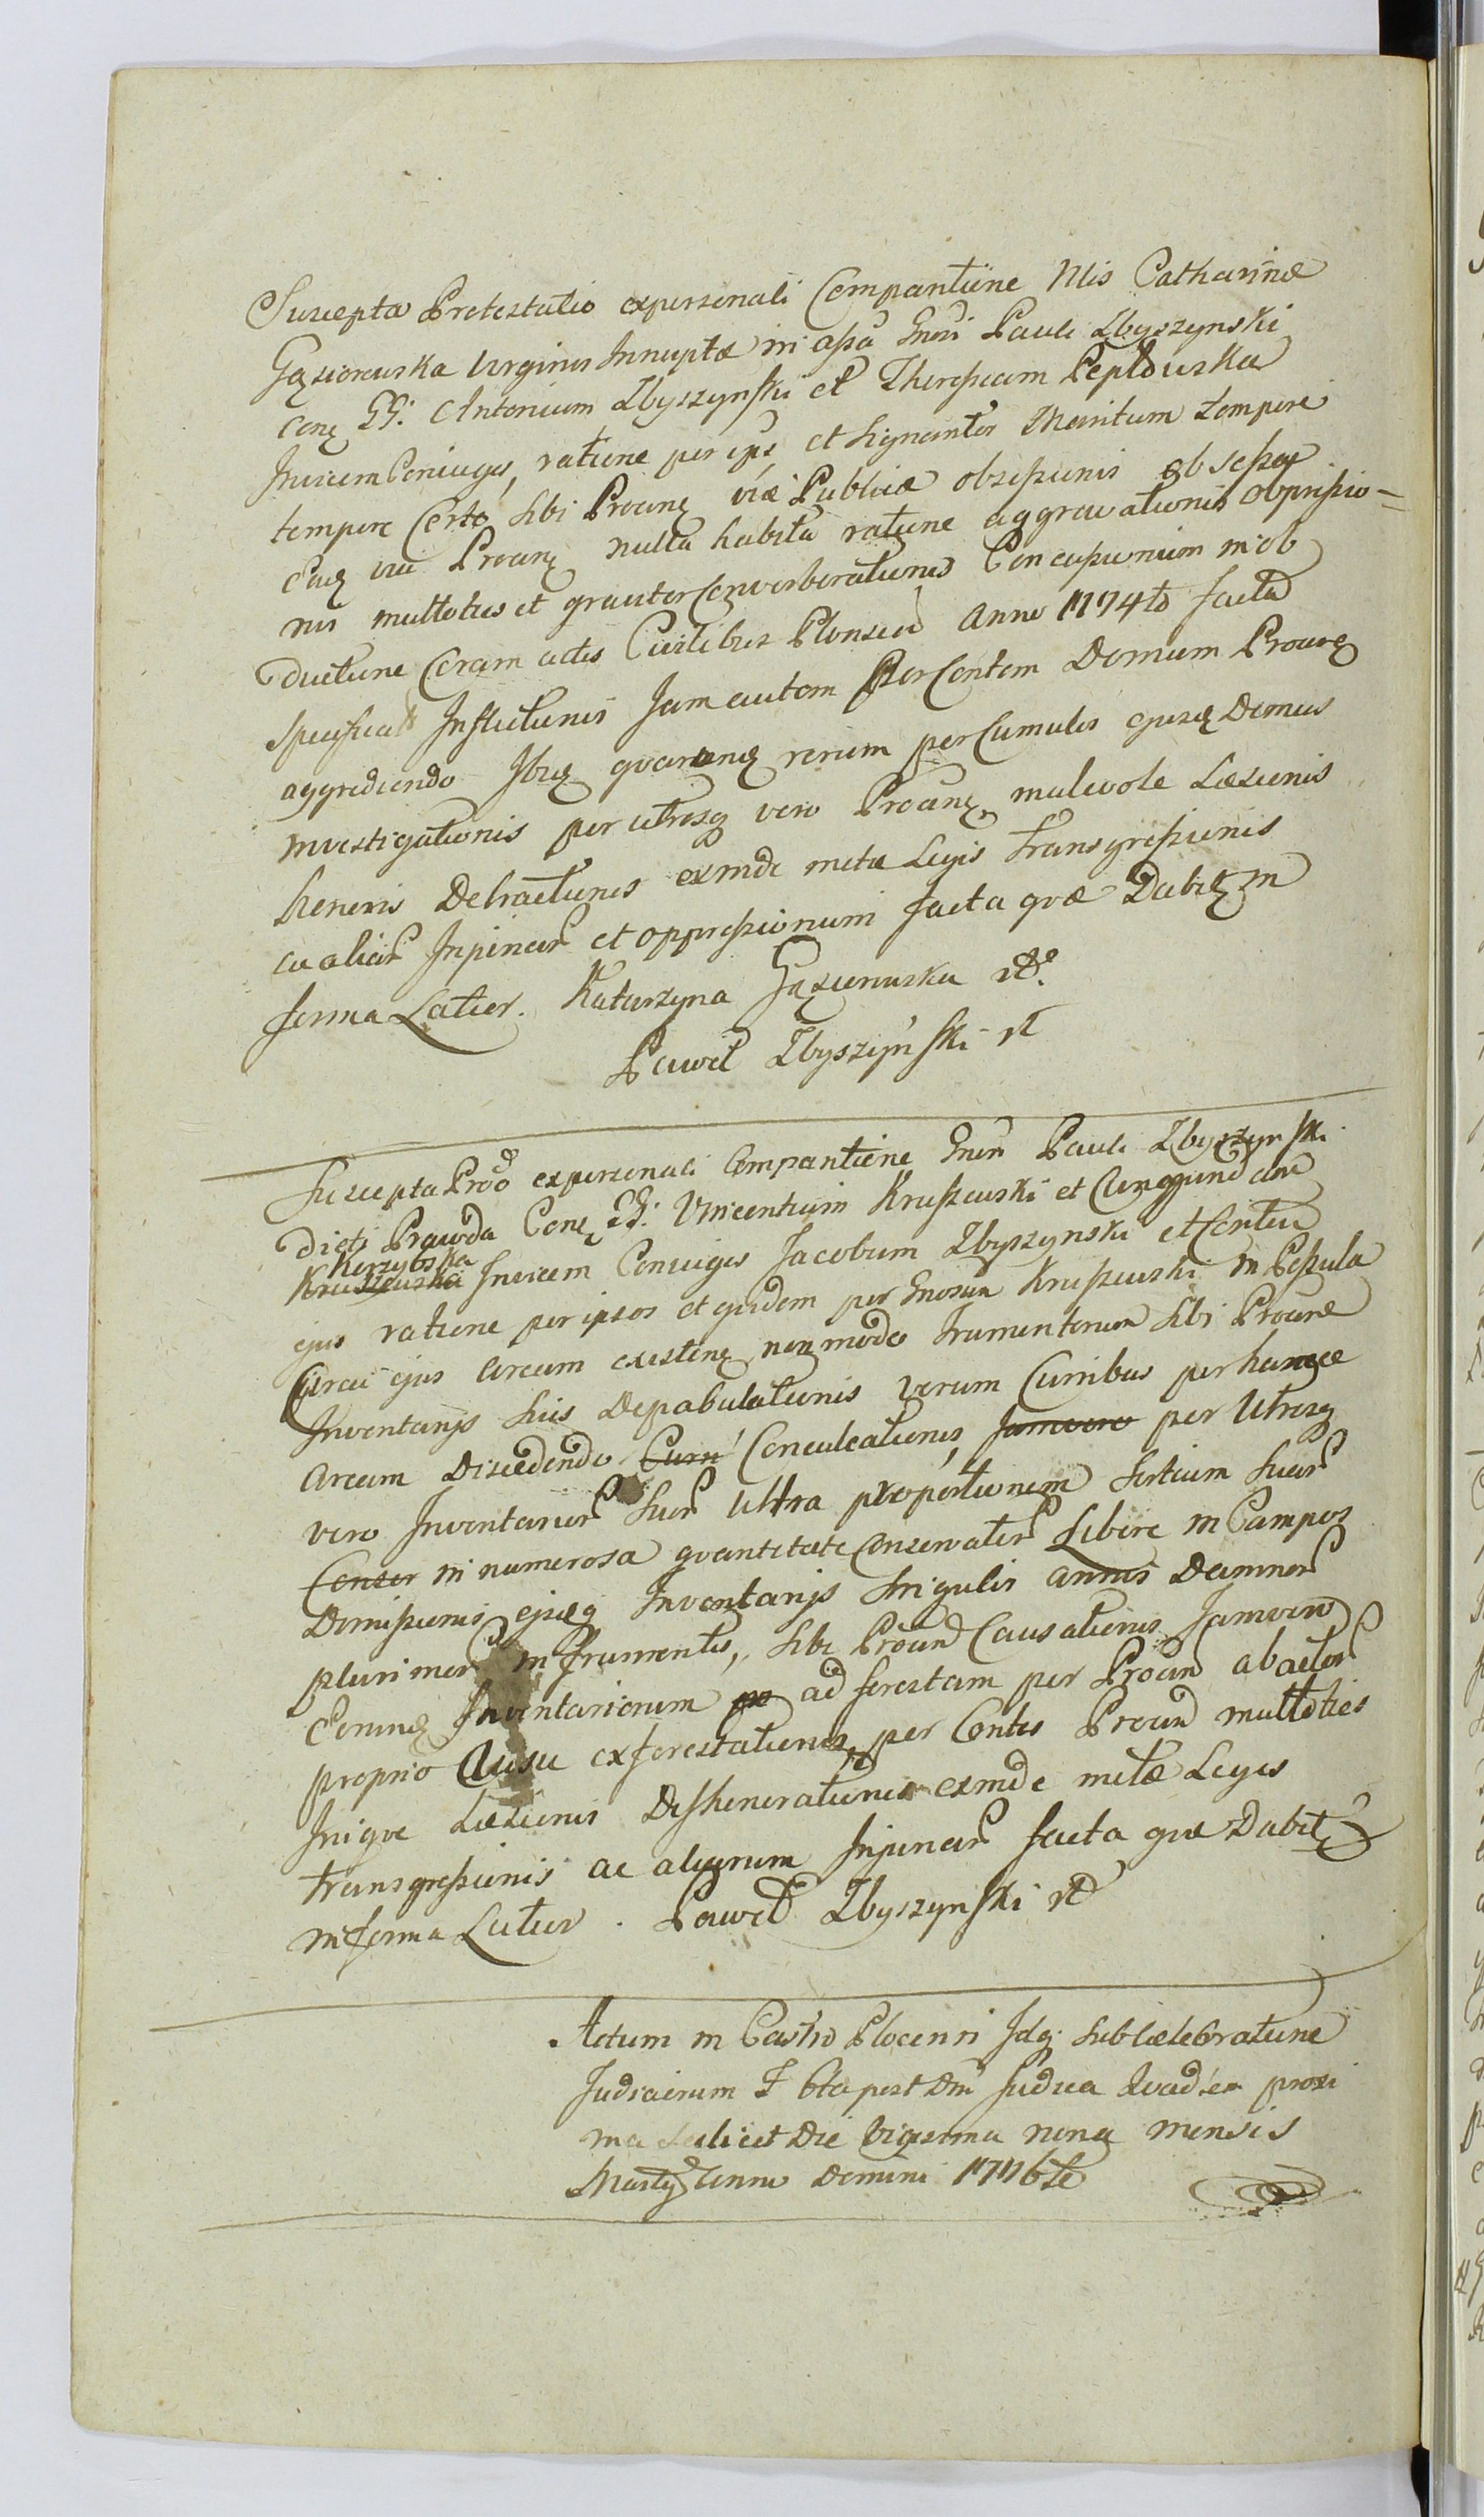 Suscepta Protestatio expersonali Comparitione Nlis Catharinæ
Gąsiorowska Virginis Innuptæ in assa Gnosi Pauli Zbyszynski
Conq GG: Antonium Zbyszynski et Theressam Peplowska
Invicem Coniuges, ratione per ips et Signanter Maritum tempore
tempore Certo sibi Proanq viæ Publicæ obsessionis obsessaq
Eaq via Proanq nulla habita ratione aggravationis oppressio=
nis multoties et graviter Converberationis Concussionum in ob
ductione Coram actis Civilibus Plonscen Anno 1774to facta
specificat Inflictionis Jam autem per Contem Domum Proanq
aggrediendo Ibiq rerum per Cumulis ejusq Domus
investigationis per utrosq vero Proanq malevole Læsionis
honoris Detractionis exinde metæ Legis transgressionis
ac aliar Injuriar et oppressionum facta quæ Dabitq in
forma Latior. Katarzyna Gąsiorowska
Paweł Zbyszynski
Suscepta Proo expersonali Comparitione Gnosi Pauli Zbyszynski
dicti Prawda Conq GG: Vincentium Kruszewski et Cunegundam
Korzybska
Kruszewska Invicem Coniuges Jacobum Zbyszynski et Contem
ejus ratione per ipsos et quidem per Gnosum Kruszewski in Pessula
Circa ejus aream existenq non modo frumentorum sibi Proanq
Inventarys suis Depabulationis verum Curribus per hancce
aream Discedendo Curri Conculcationis, Jamvero per Utrosq
vero Inventarior suor Ultra proportionem Sortium suar
Conser in numerosa quantitate Conservator Libere in Campos
Dimissionis ejusq Inventarys singulis annis Damnor
plurimor in frumentis, sibi Proan Causationis Jamvero
Eorunq Inventariorum pe ad forestam per Proan ab actor
proprio Ausu exforestationis, per Contes Proan multoties
Inique Læsionis Dishonorationis exinde metæ Legis
transgressionis ac aliarum Injuriar facta quæ Dabitq
in forma Latior. Paweł Zbyszynski
Actum in Castro Plocensi Idq sub Celebratione
Judiciorum F 6ta post Dm Judica Quad'em proxi
ma scilicet Die Vigesima nona mensis
Marty Anno Domini 1776to